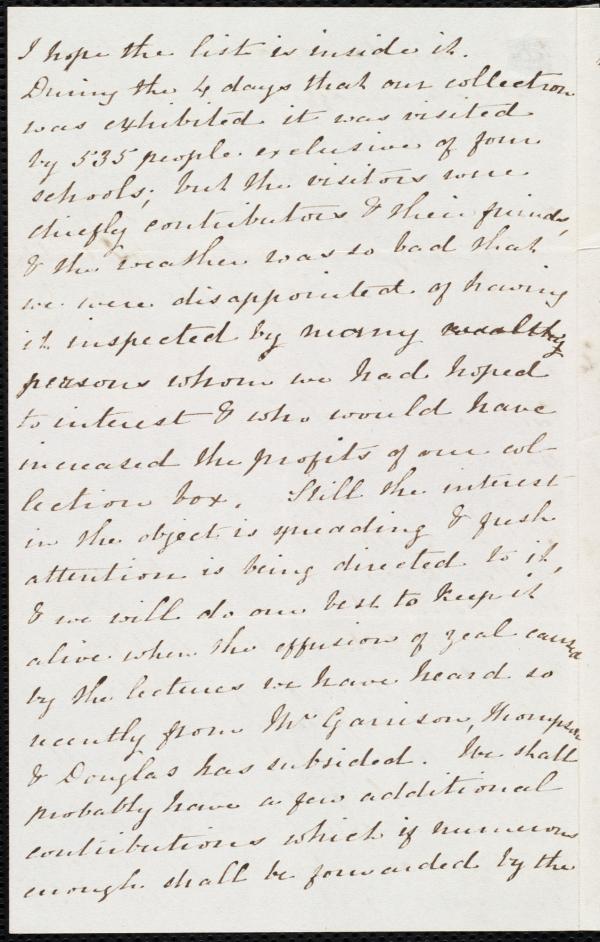 I hope the list is inside it.
During the 4 days that our collection
was exhibited it was visited
by 535 people exclusive of four
schools; but the visitors were
chiefly contributors & their friends,
& the weather was so bad that
we were disappointed of having
it inspected by many wealthy
persons whom we had hoped
to interest & who would have
increased the profits of our col-
lection box. Still the interest
in the object is spreading & fresh
attention is being directed to it,
& we will do our best to keep it
alive when the effusion of zeal caused
by the lectures we have heard so
recently from Mr Garrison, Thompson
& Douglas has subsided. We shall
probably have a few additional
contributions which if numerous
enough shall be forwarded by the